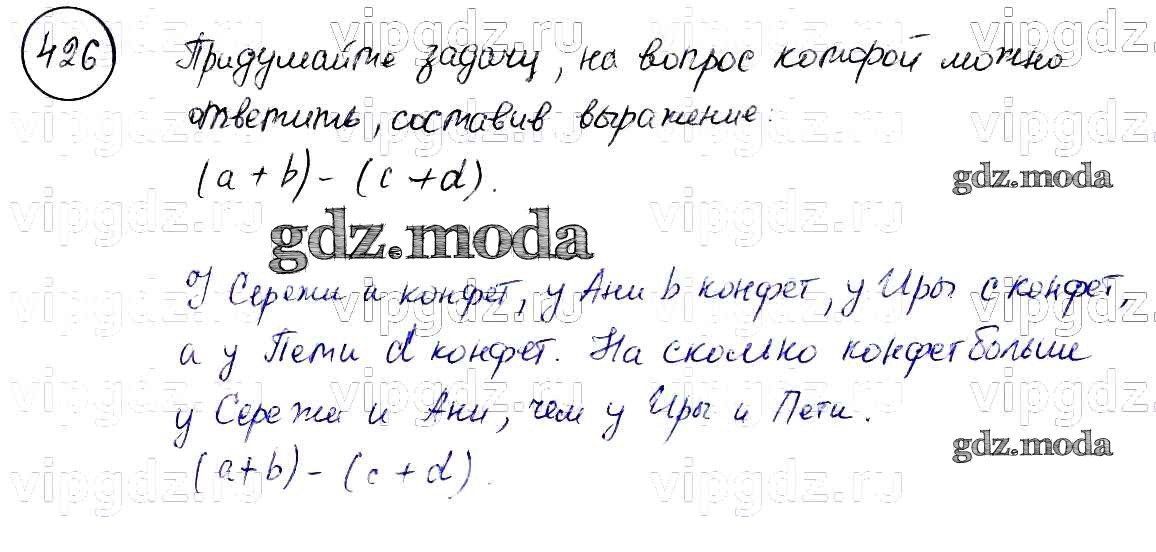 426 Придумайте задачу, на вопрос которой можно
ответить, составив выражение:
(a + b) - (c + d).
gdz.moda
gdz.moda
У Сережи и конфет, у Ани b конфет, у Иры c конфет,
а у Пети d конфет. На сколько конфет больше
у Сережи и Ани, чем у Иры и Пети.
gdz.moda
(a+b) - (c + d).
vipgdz.ru